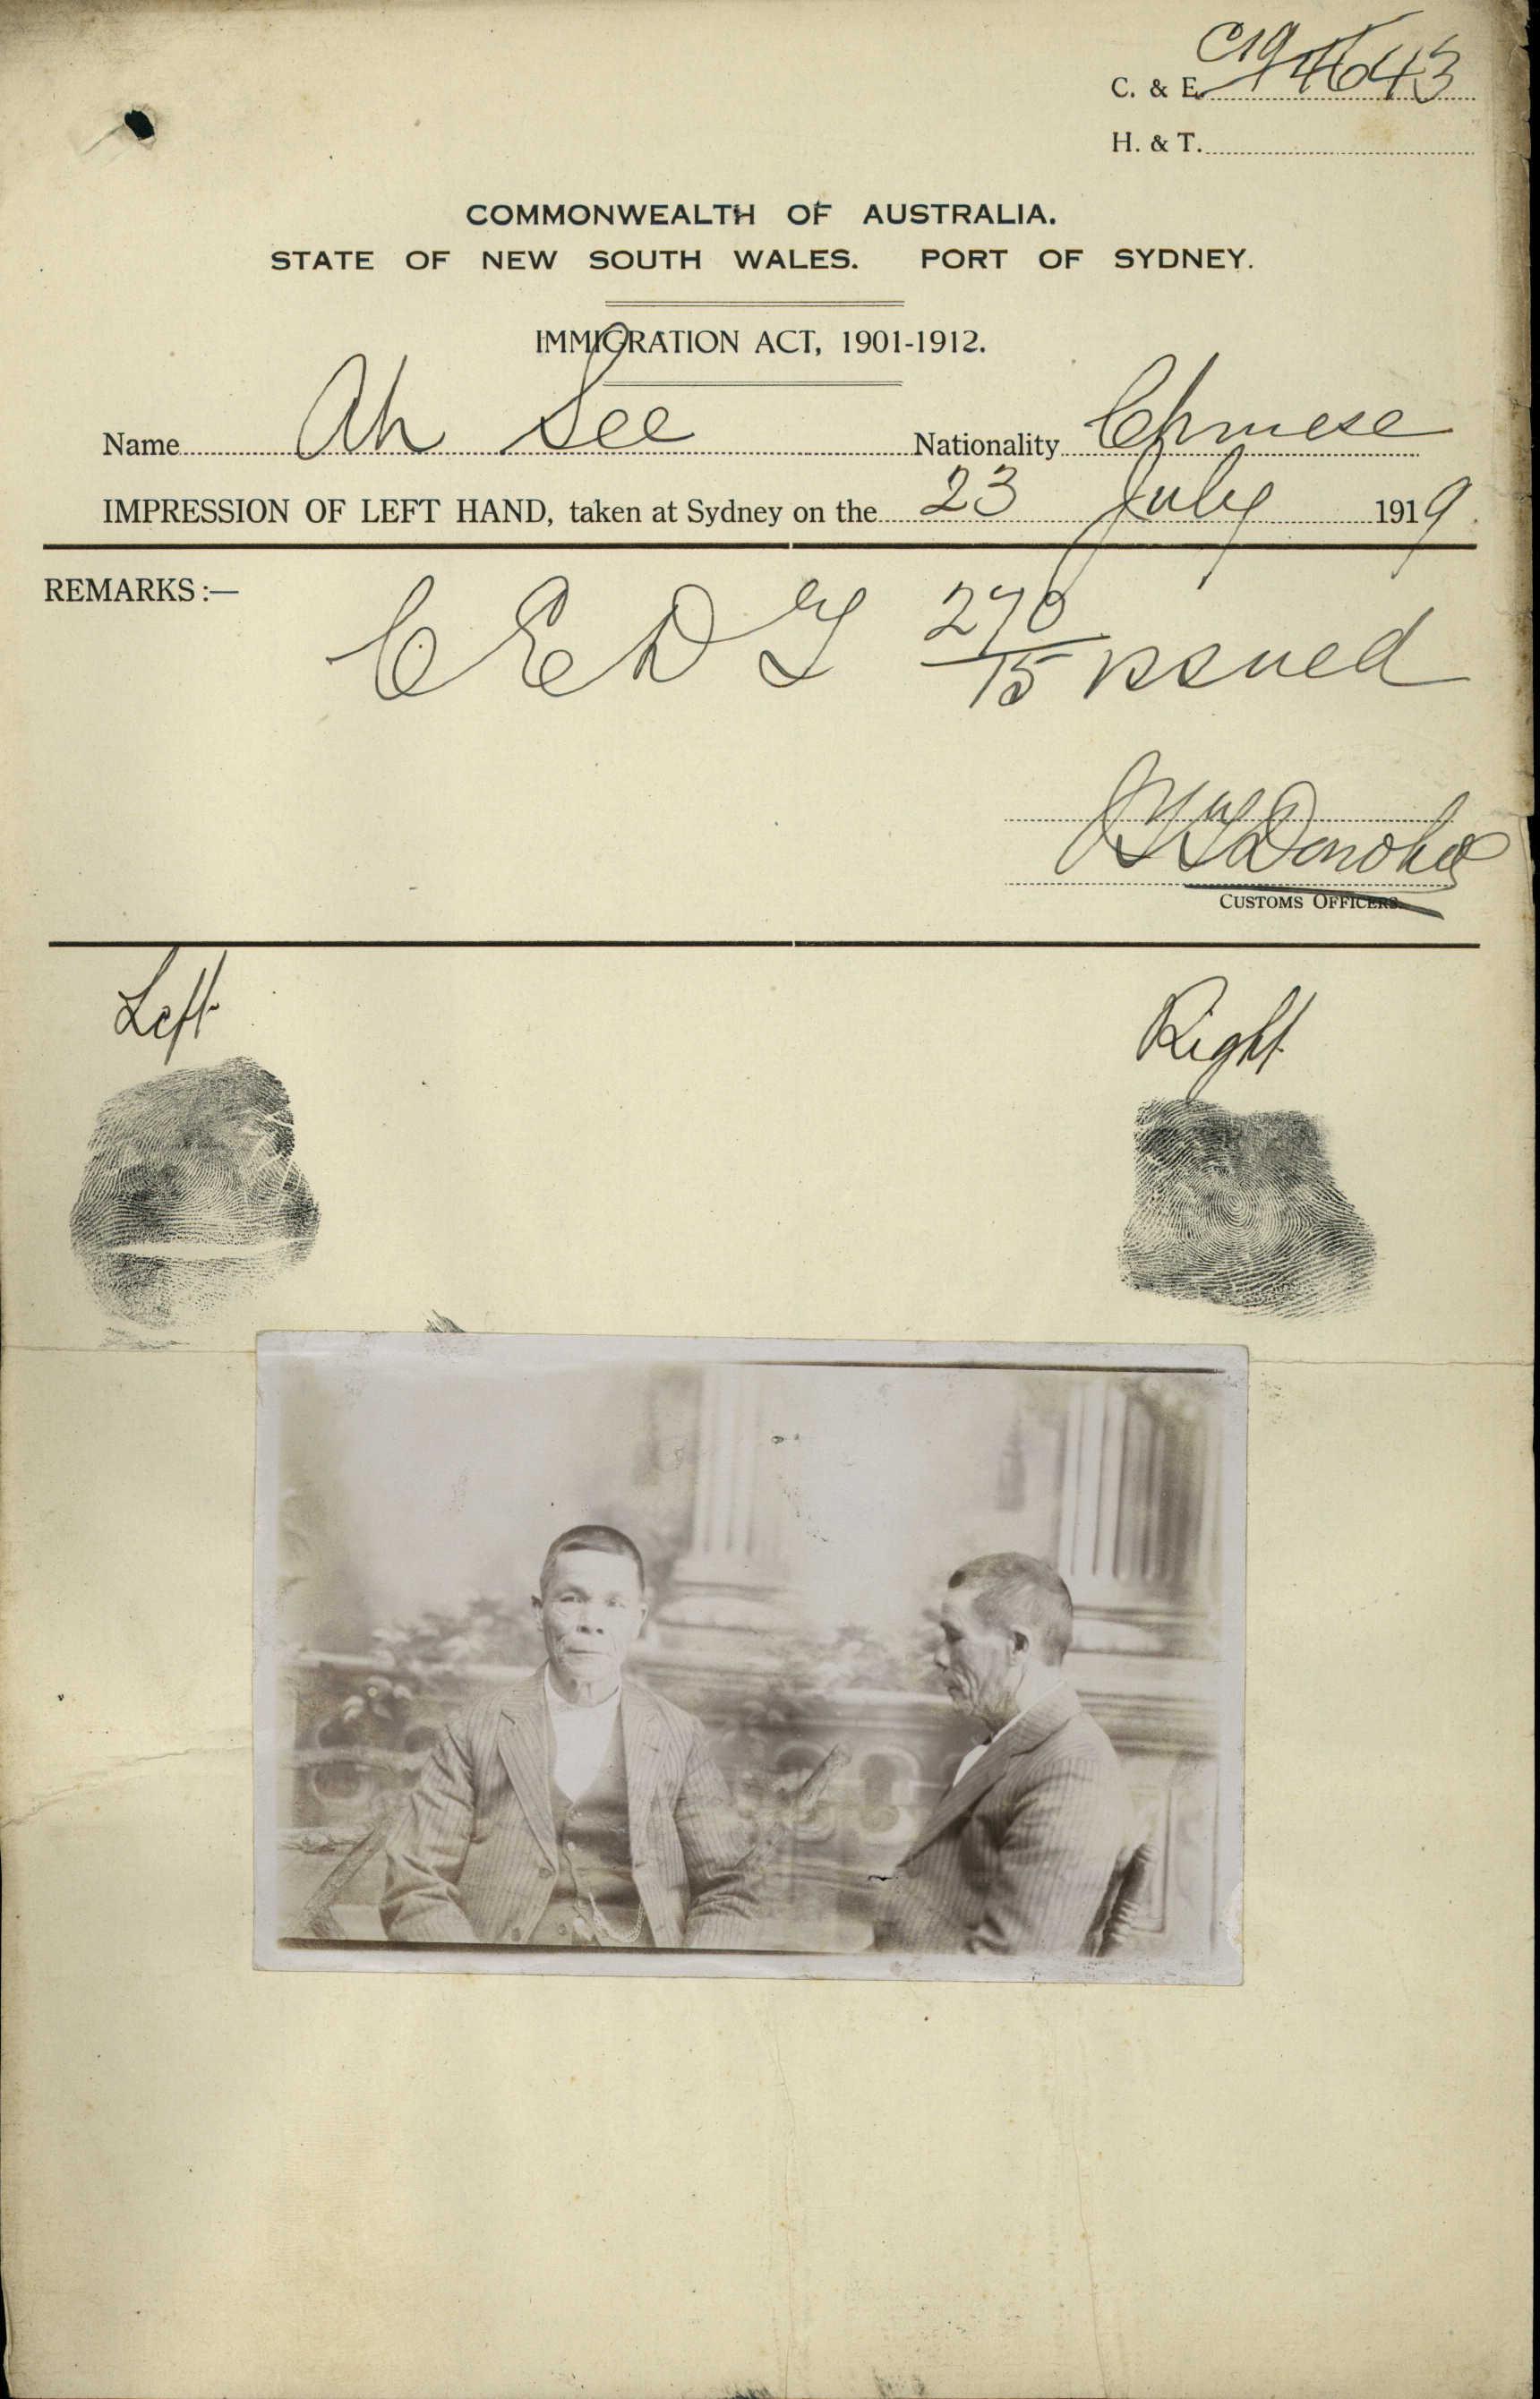 C. & E. C19/4643
H. & T.
COMMONWEALTH OF AUSTRALIA.
STATE OF NEW SOUTH WALES. PORT OF SYDNEY.
IMMIGRATION ACT, 1901-1912.
Name Ah See Nationality Chinese
IMPRESSION OF LEFT HAND, taken at Sydney on the 23 July 1919.
REMARKS :—
C E D T 270/15 issued
Donohoe
CUSTOMS OFFICERS.
Left
Right